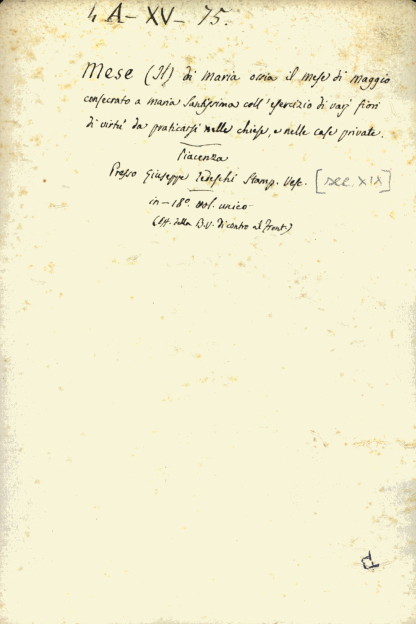 4 A-XV-75.
Mese (Il) di Maria ossia il mese di maggio
consecrato a Maria Santissima coll' esercizio di varj fiori
di virtù da praticarsi nelle chiese, e nelle case private.
Piacenza
Presso Giuseppe Tedeschi Stamp. Vesc. [sec. XIX]
in-18º vol. unico
(Eff. della B.V. di contro al front.)